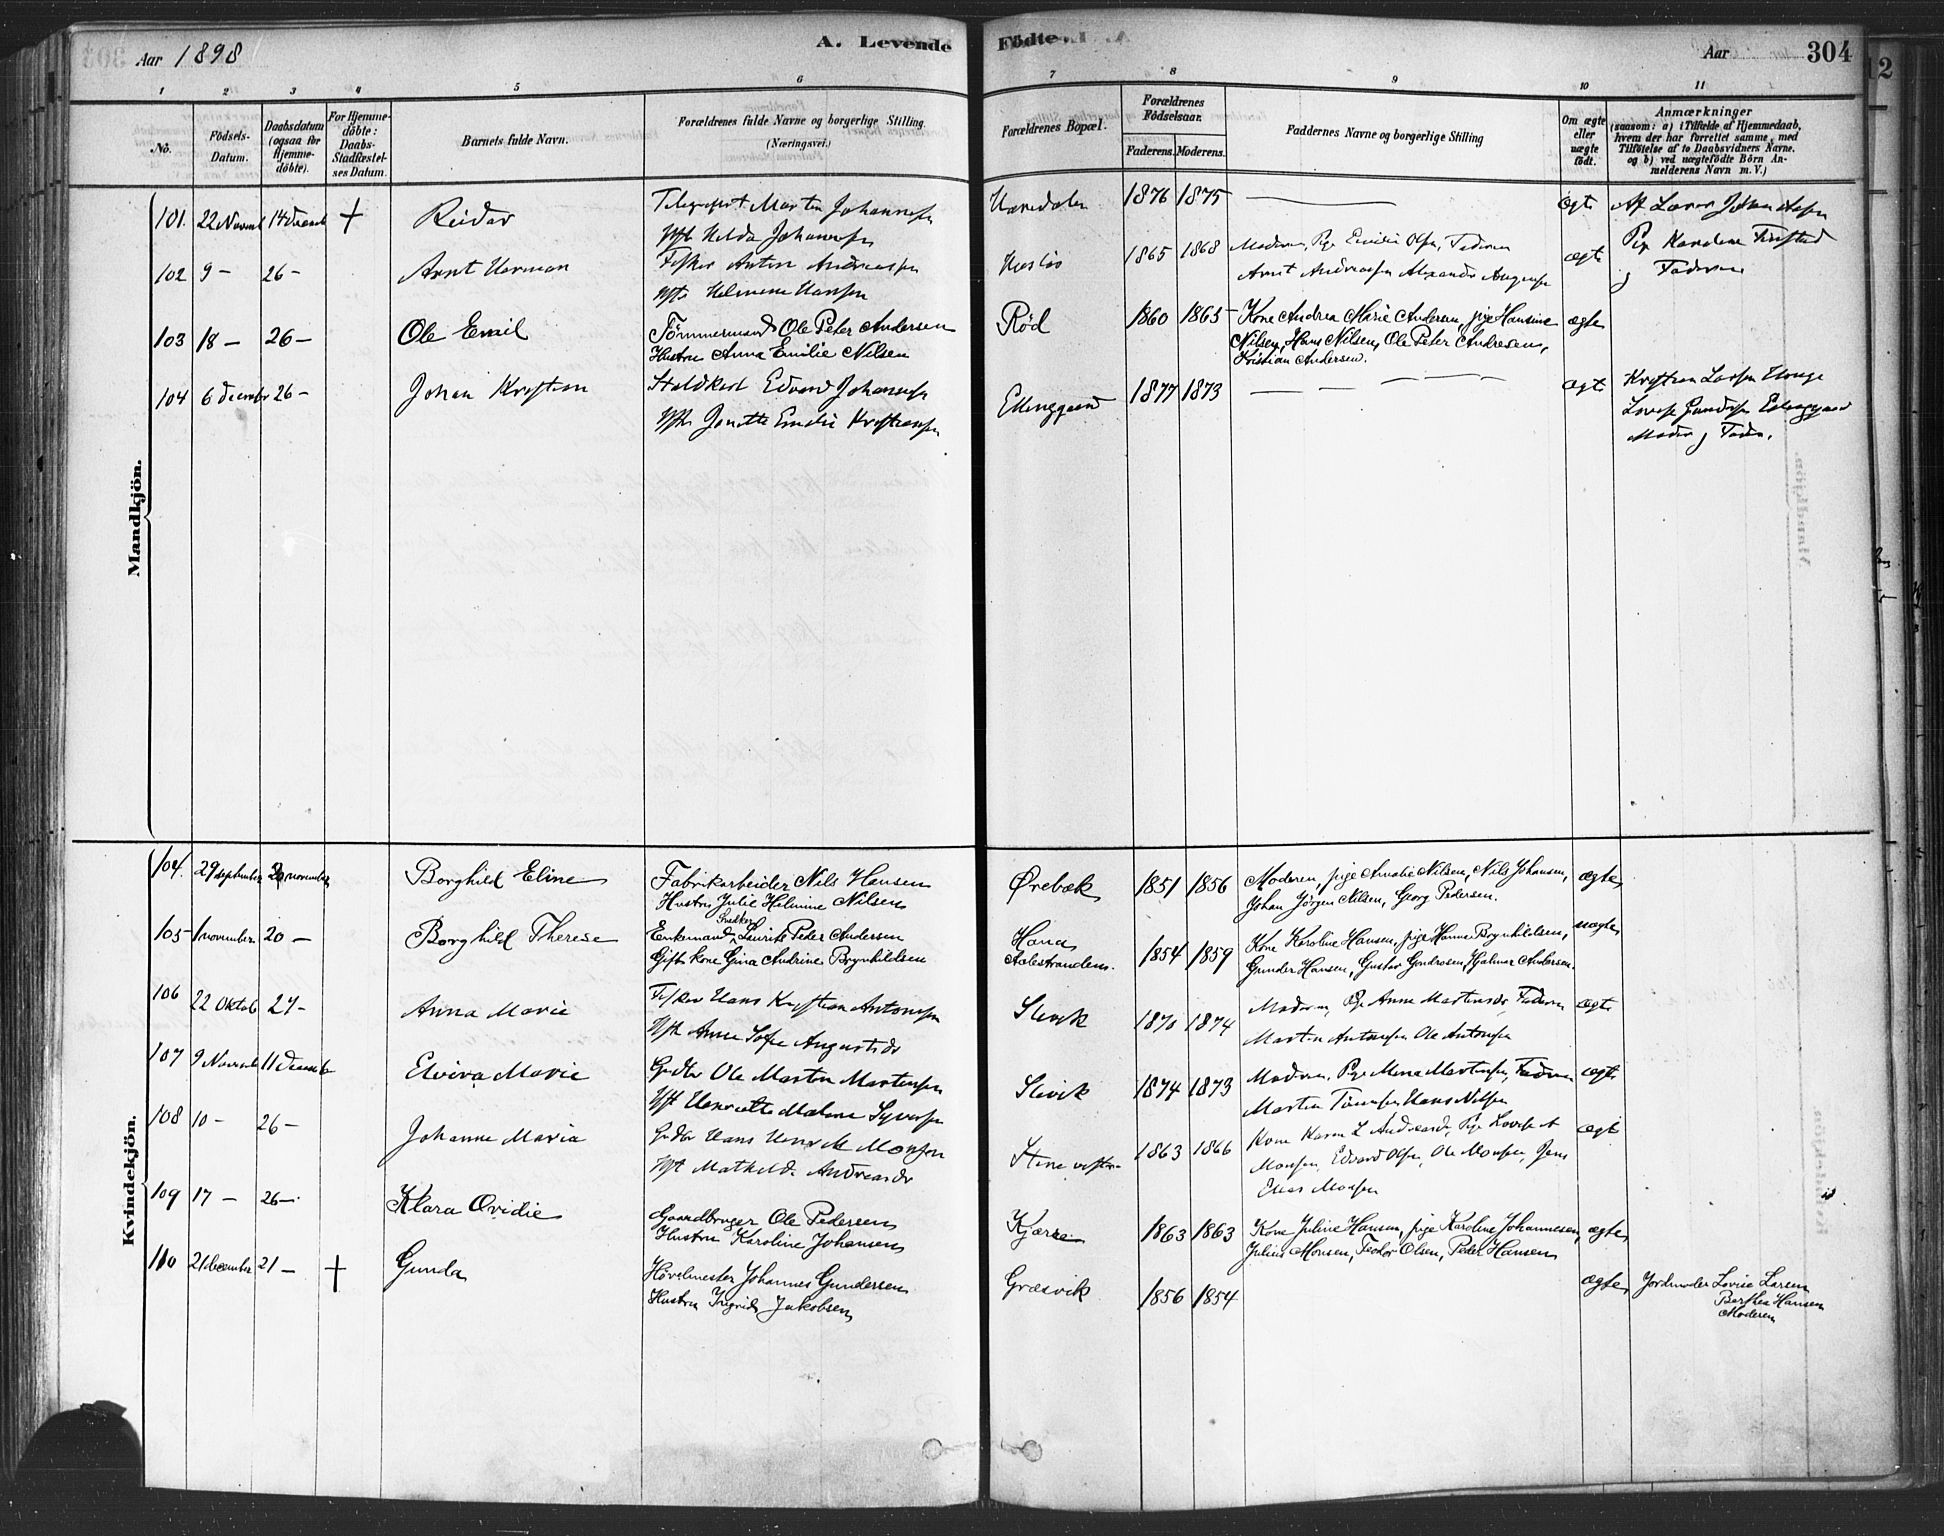 Aar 1898
A. Levende
Fødte.
Aar
304
1 2 3 4 5 6 7 8 9 10 11
No.
Fødsels-Datum.
Daabsdatum (ogsaa for Hjemme-døbte).
For Hjemme-døbte: Daabs-Stadfæstel-ses Datum.
Barnets fulde Navn.
Forældrenes fulde Navne og borgerlige Stilling.
(Næringsvei.)
Forældrenes Bopæl.
Forældrenes Fødselsaar.
Faderens. Moderens.
Faddernes Navne og borgerlige Stilling
Om ægte eller uægte født.
Anmærkninger
(saasom: a) i Tilfælde af Hjemmedaab,
hvem der har forrettet samme, med
Tilføielse af to Daabsvidners Navne,
og b) ved uægtefødte Börn An-
melderens Navn m. V.)
Mandkjön.
101. 22 Novemb 14 Decemb + Reidar Telegrafist Martin Johannesen 1876 1875 ægte Af Lærer
Hst Hilda Johannesen Pige Karoline
102 9 – 26 – Arnt Herman Fisker Anton Andreassen 1865 1868 Moderen, Pige Emilie Olsen, Faderen ægte og Faderen
Hst Helmine Hansen Arnt Andreassen
103 18 – 26 – Ole Emil Tömmermand Ole Peter Andersen Rød 1860 1863 Kone Andrea Marie Andersen, pige Hansine ægte
Hustru Anna Emilie Nilsen Nilsen, Hans Nilsen, Ole Peter Andresen,
Kristian Andersen.
104 6 December 26 – Johan Kristian Edvard Johansen Elinggaard 1877 1873 ægte Kristian Larsen
Hst Janette Emilie Kristiansen Lovise
Moder og Fader.
Kvindekjön.
104. 29 september 20 november Borghild Eline Fabrikarbeider Nils Hansen Ørebæk 1851 1856 Moderen, pige Amalie Nilsen, Nils Johansen, ægte
Hustru Julie Helmine Nilsen Johan Jörgen Nilsen, Georg Pedersen.
105 1 november 20 – Borghild Therese Enkemand, Snekker Laurits Peder Andersen 1854 1859 Kone Karoline Hansen, pige Hanna Brynhildsen, uægte
Gift kone Gina Andrine Brynhildsen Aalestranden. Gunder Hansen, Gustav Gundrosen, Hjalmar Andersen.
106 22 Oktob 27 – Anna Marie Fisker Hans Kristian Antonsen Slevik 1870 1874 Moderen, Pige Anne Martinsdr, Faderen ægte
Hst Anne Sofie Augustsdr Martin Antonsen Ole Antonsen
107 9 Novemb 11 Decemb Elvira Marie Ole Martin Martinsen Slevik 1874 1873 Moderen, Pige Mina Martinsen, Faderen ægte
Hst Henriette Malene Syversen Martin Hans Nilsen
108 10 – 26 – Johanne Maria Hans Henrik Monsen 1863 1866 Kone Karen L Andreasdr, Pige Lovise ægte
Hst Mathilde Andreasdr Monsen, Edvard Olsen, Ole Monsen, Jens
Elias Monsen
109 17 – 26 – Klara Ovidie Gaardbruger Ole Pedersen Kjærre 1863 1863 Kone Juline Hansen, pige Karoline Johannesen, ægte
Hustru Karoline Johansen Julius Monsen, Teodor Olsen, Peder Hansen
110 21 december 21 – + Gunda Høvelmester Johannes Gundersen Græsvik 1856 1854 ægte Jordmoder Lovise Larsen
Hustru Ingrid Jakobsen Berthea Hansen
Moderen